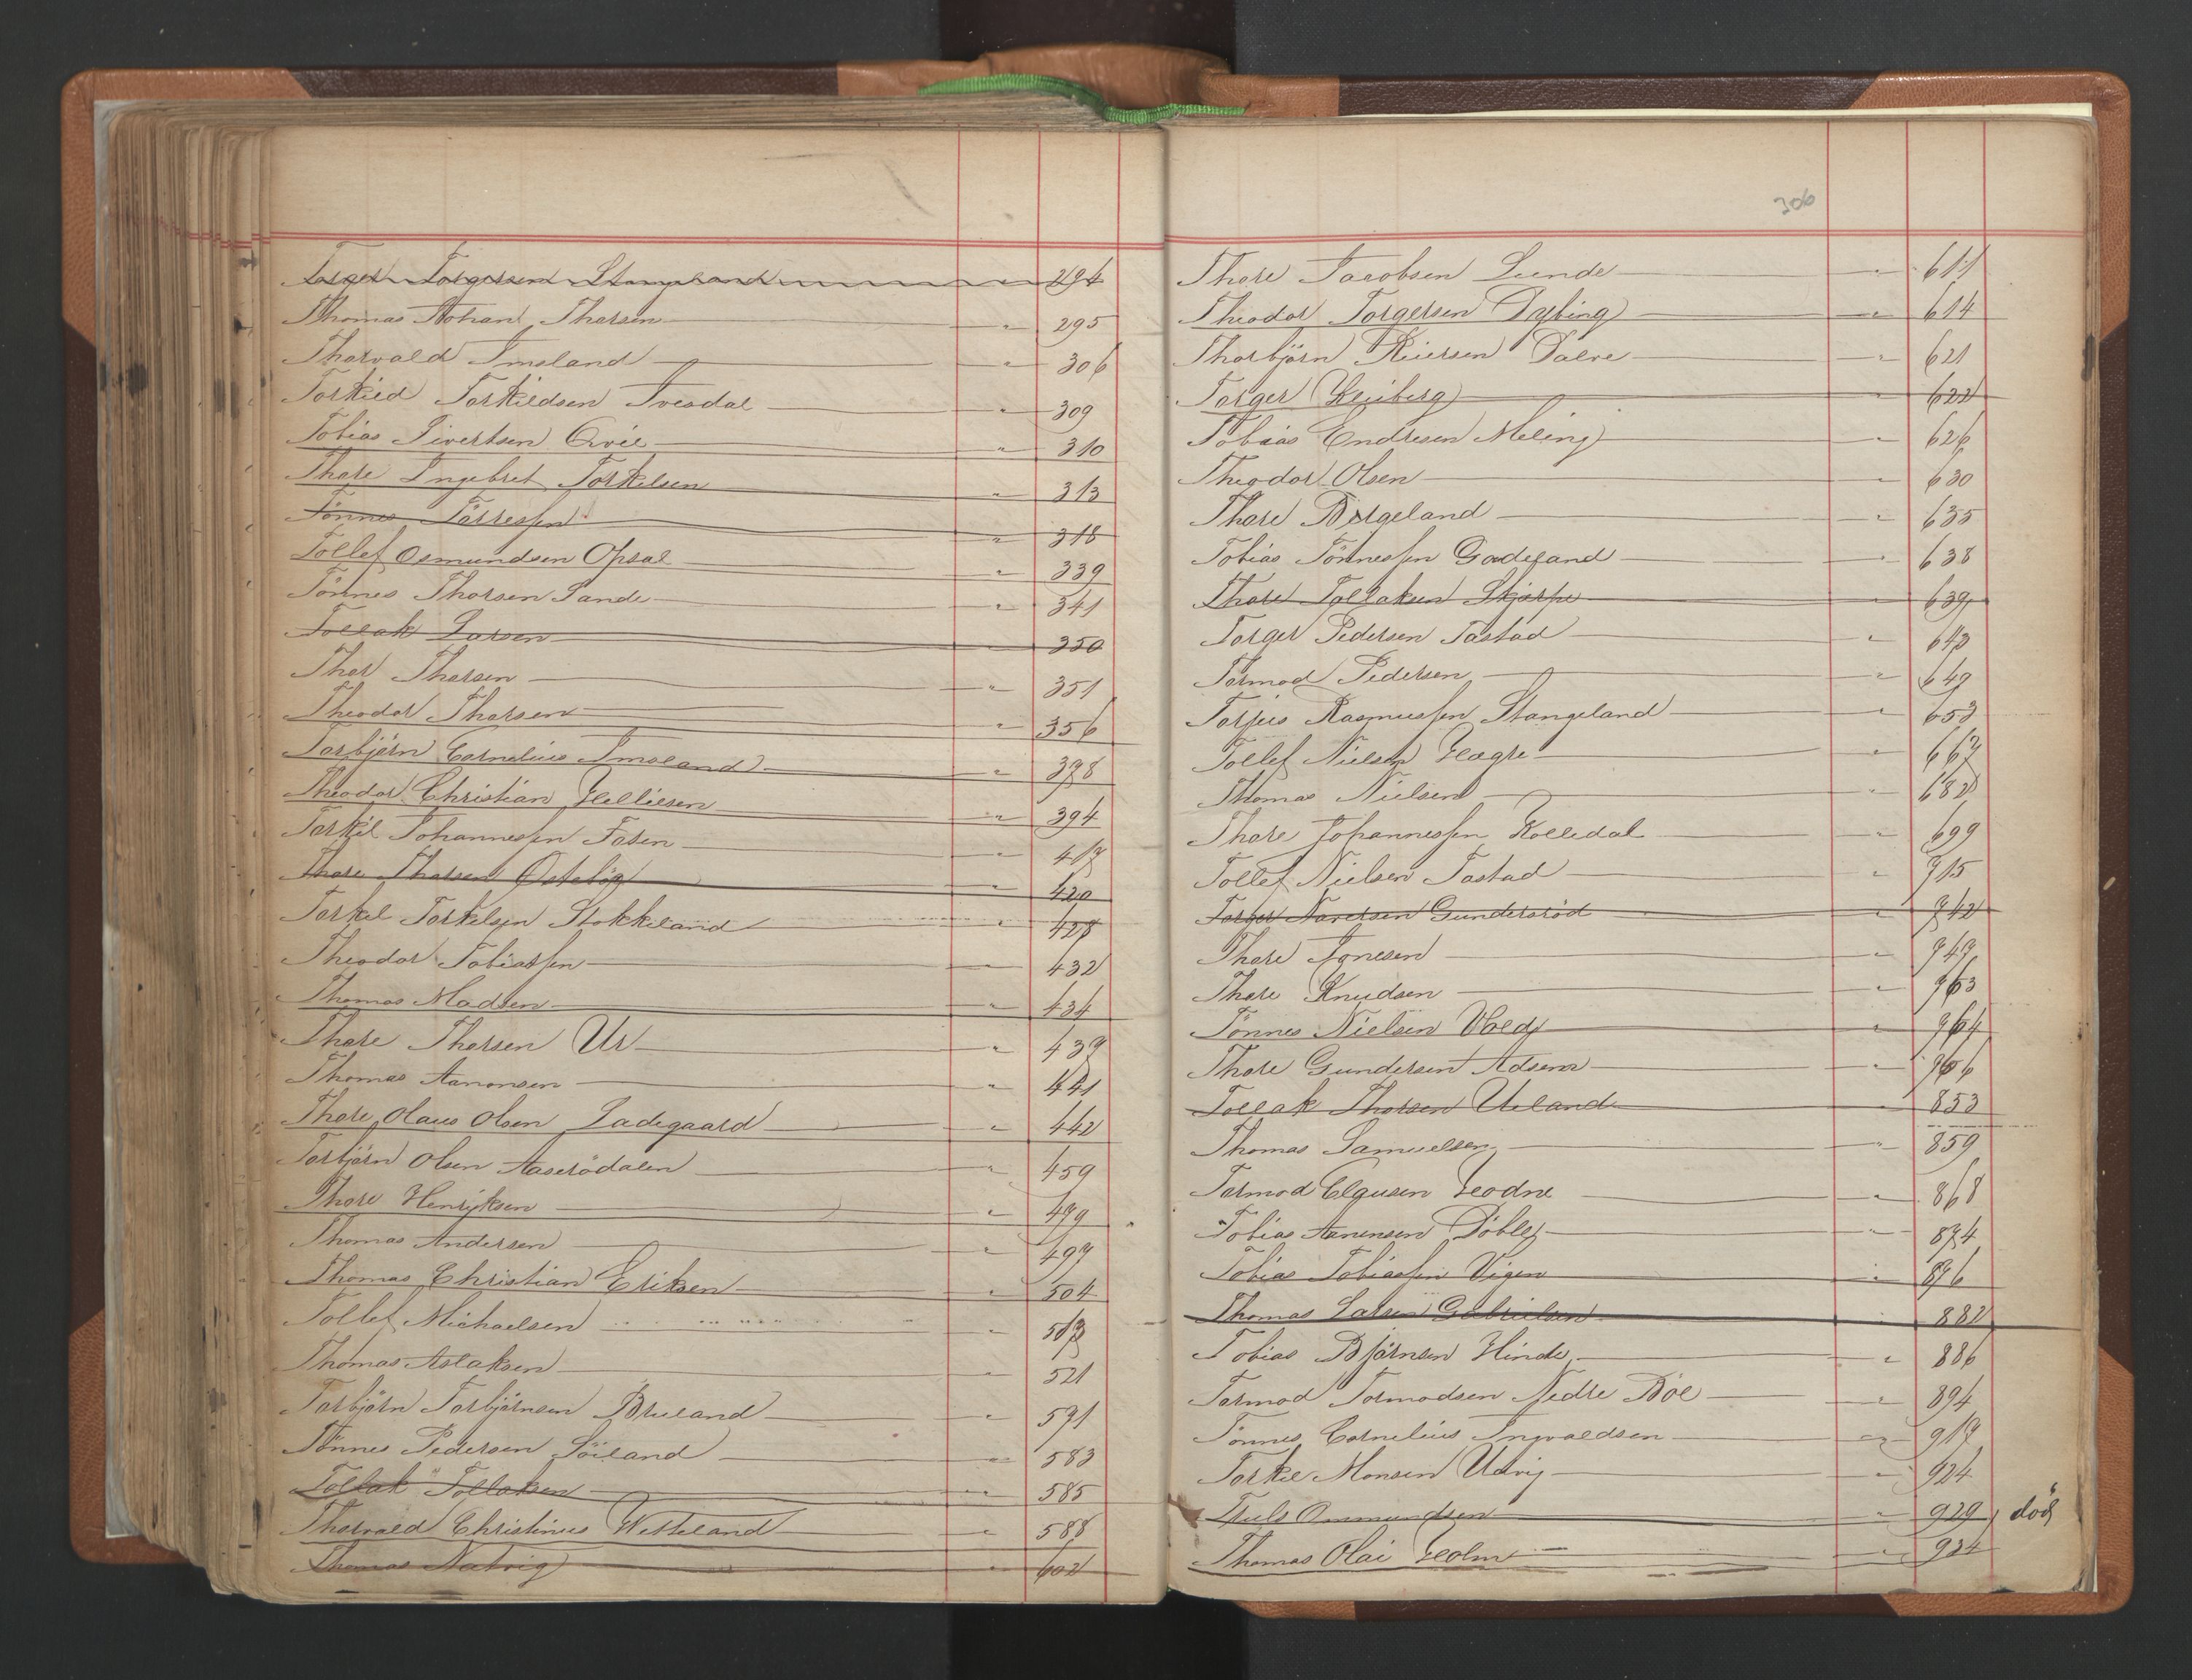 Torger Torgersen Stangeland 294
Thomas Johan Thorsen " 295
Thorvald Imsland " 306
Torkild Torkildsen Tvesdal " 309
Tobias Sivertsen Qvie " 310
Thore Ingebret Torkelsen " 313
Tönnes Törressen " 318
Tollef Osmundsen Opsal " 339
Tönnes Thorsen Sande " 341
Tollak Larsen 350
Thor Thorsen " 351
Theodor Thorsen " 356
Torbjörn Cornelius Imsland " 378
Theodor Christian Helliesen " 394
Torkil Johannessen Fosen " 417
Thore Thorsen Ostebög " 420
Torkel Torkelsen Stokkeland " 428
Theodor Tobiassen " 432
Thomas Madsen " 434
Thore Thorsen Ur " 437
Thomas Aanonsen " 441
Thore Olaus Olsen Ladegaard " 442
Torbjörn Olsen Aaserödalen " 459
Thore Henriksen " 479
Thomas Andersen " 497
Thomas Christian Eriksen " 504
Tollef Michaelsen " 517
Thomas Aslaksen " 521
Torbjörn Torbjörnsen Brueland " 571
Tönnes Pedersen Söiland " 583
Tollak Tollaksen " 585
Thorvald Christinius Wetteland " 588
Thomas Natvig " 602
306
Thore Jacobsen Lunde " 611
Theodor Torgersen Dybing " 614
Thorbjörn Reiersen Dalve " 621
Torger Kleiberg 622
Tobias Endresen Meling " 626
Theodor Olsen " 630
Thore Birgeland " 635
Tobias Tönnessen Godeland " 638
Thore Tollaksen Skjörpe " 639
Torger Pedersen Tastad " 643
Tormod Pedersen " 649
Torjus Rasmussen Stangeland " 653
Tollef Nielsen Hagre " 667
Thomas Nielsen " 682
Thore Johannessen Kolledal " 699
Tollef Nielsen Tastad " 715
Torger Gundersröd " 742
Thore Tönesen " 747
Thore Knudsen " 763
Tönnes Nielsen Wold " 764
Thore Gundersen " 766
Tollak Thorsen Ueland 853
Thomas Samuelsen " 859
Tormod Clausen Hodne " 868
Tobias Aanensen " 874
Tobias Tobiassen Vigen " 876
Thomas Larsen Gabrielsen 882
Tobias Björnsen Hinde " 886
Tormod Tormodsen Nedre Böe " 894
Tönnes Cornelius Ingvaldsen " 917
Torkel Monsen Udvig " 924
Truls Ommundsen " 929 död
Thomas Olai Holm " 934